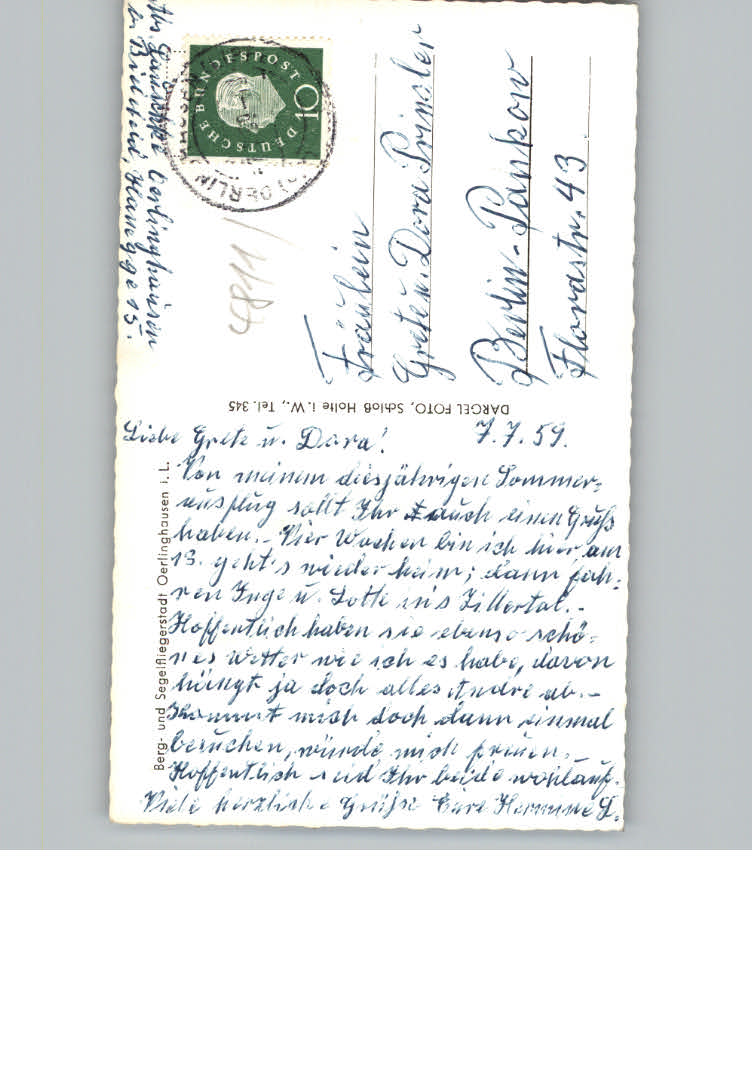 Abs. G.
Oerlinghausen
b. Bielefeld,
15.
DEUTSCHE BUNDESPOST
10
OERLINGHAUSEN
4811
Fräulein
Grete u. Dora Prinzler
Berlin-Pankow
Florastr. 43
DARGEL FOTO, Schloß Holte i. W., Tel. 345
Berg- und Segelfliegerstadt Oerlinghausen i. L.
Liebe Grete u. Dora! 7.7.59.
Von meinem diesjährigen Sommer-
ausflug sollt Ihr auch einen Gruß
haben. - Vier Wochen bin ich hier am
13. geht's wieder heim; dann fah-
ren Inge u. Lotte in's Zillertal. -
Hoffentlich haben sie ebenso schö-
nes Wetter wie ich es habe, davon
hängt ja doch alles Andre ab. -
Kommt mich doch dann einmal
besuchen, würde mich freuen.
Hoffentlich seid Ihr beide wohlauf.
Viele herzliche Grüße Eure Hermine L.